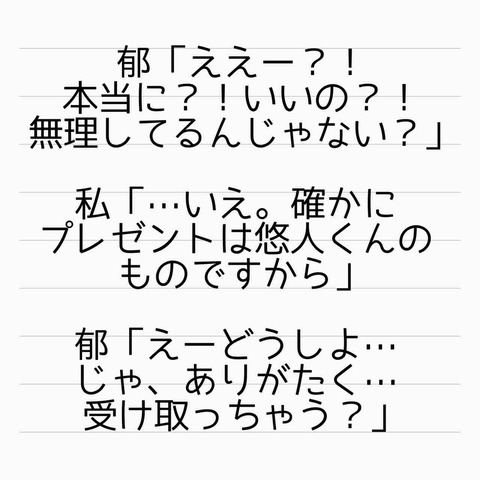 郁「ええー？！
本当に？！いいの？！
無理してるんじゃない？」
私「…いえ。確かに
プレゼントは悠人くんの
ものですから」
郁「えーどうしよ…
じゃ、ありがたく…
受け取っちゃう？」